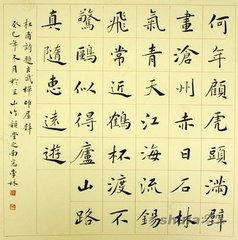 何年顧虎頭滿壁
畫滄州赤日石林
氣青天江海流錫
飛常近鶴杯渡不
驚鷗似得廬山路
真隨惠遠遊
杜甫詩題玄武禪師屋壁
癸巳年冬月於山竹堂之南窗林